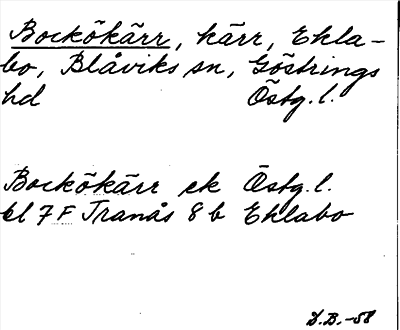 Bockökärr, kärr, Ekla-
bo, Blåviks sn, Göstrings
hd Östg.l.
Bockökärr ek Östg.l.
bl 7 F Tranås 8 b Eklabo
D.B.-58